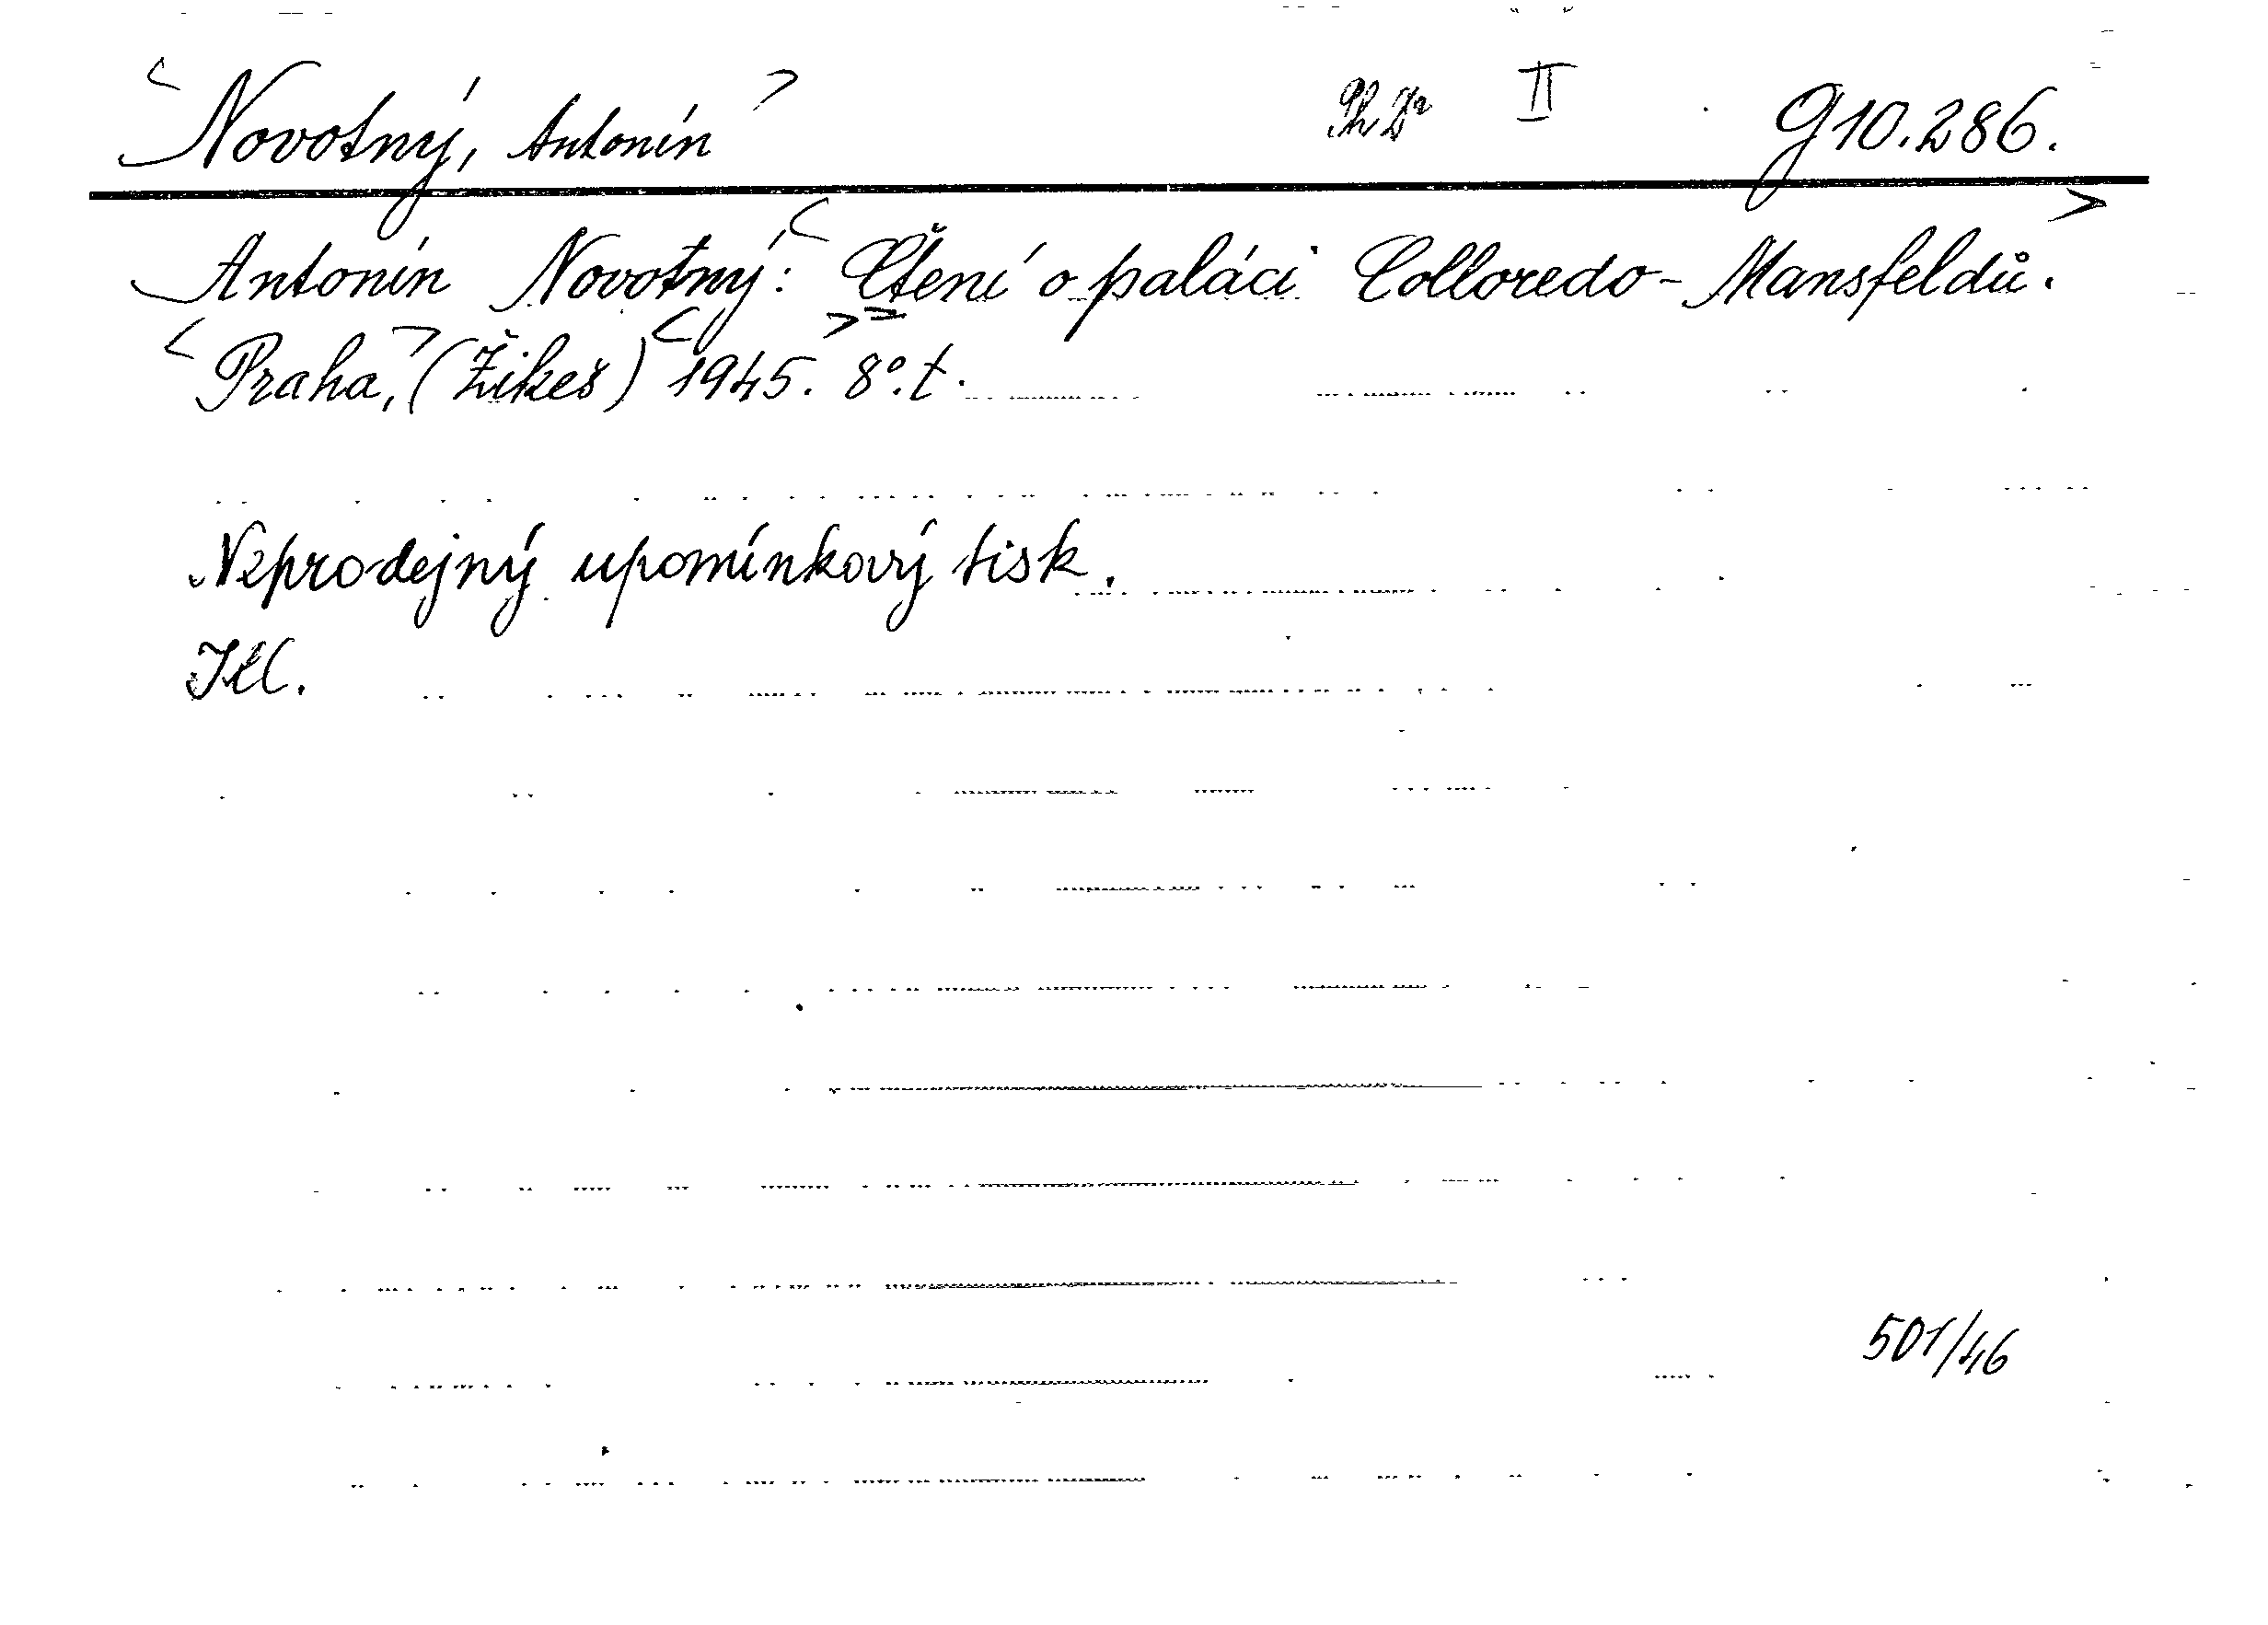 <Novotný, Antonín> PhDr II G 10.286.
Antonín Novotný: <Čtení o paláci Colloredo-Mansfeldů.>
<Praha,> (Žikeš) <1945.> 8°. t.
Neprodejný upomínkový tisk.
Ill.
501/46